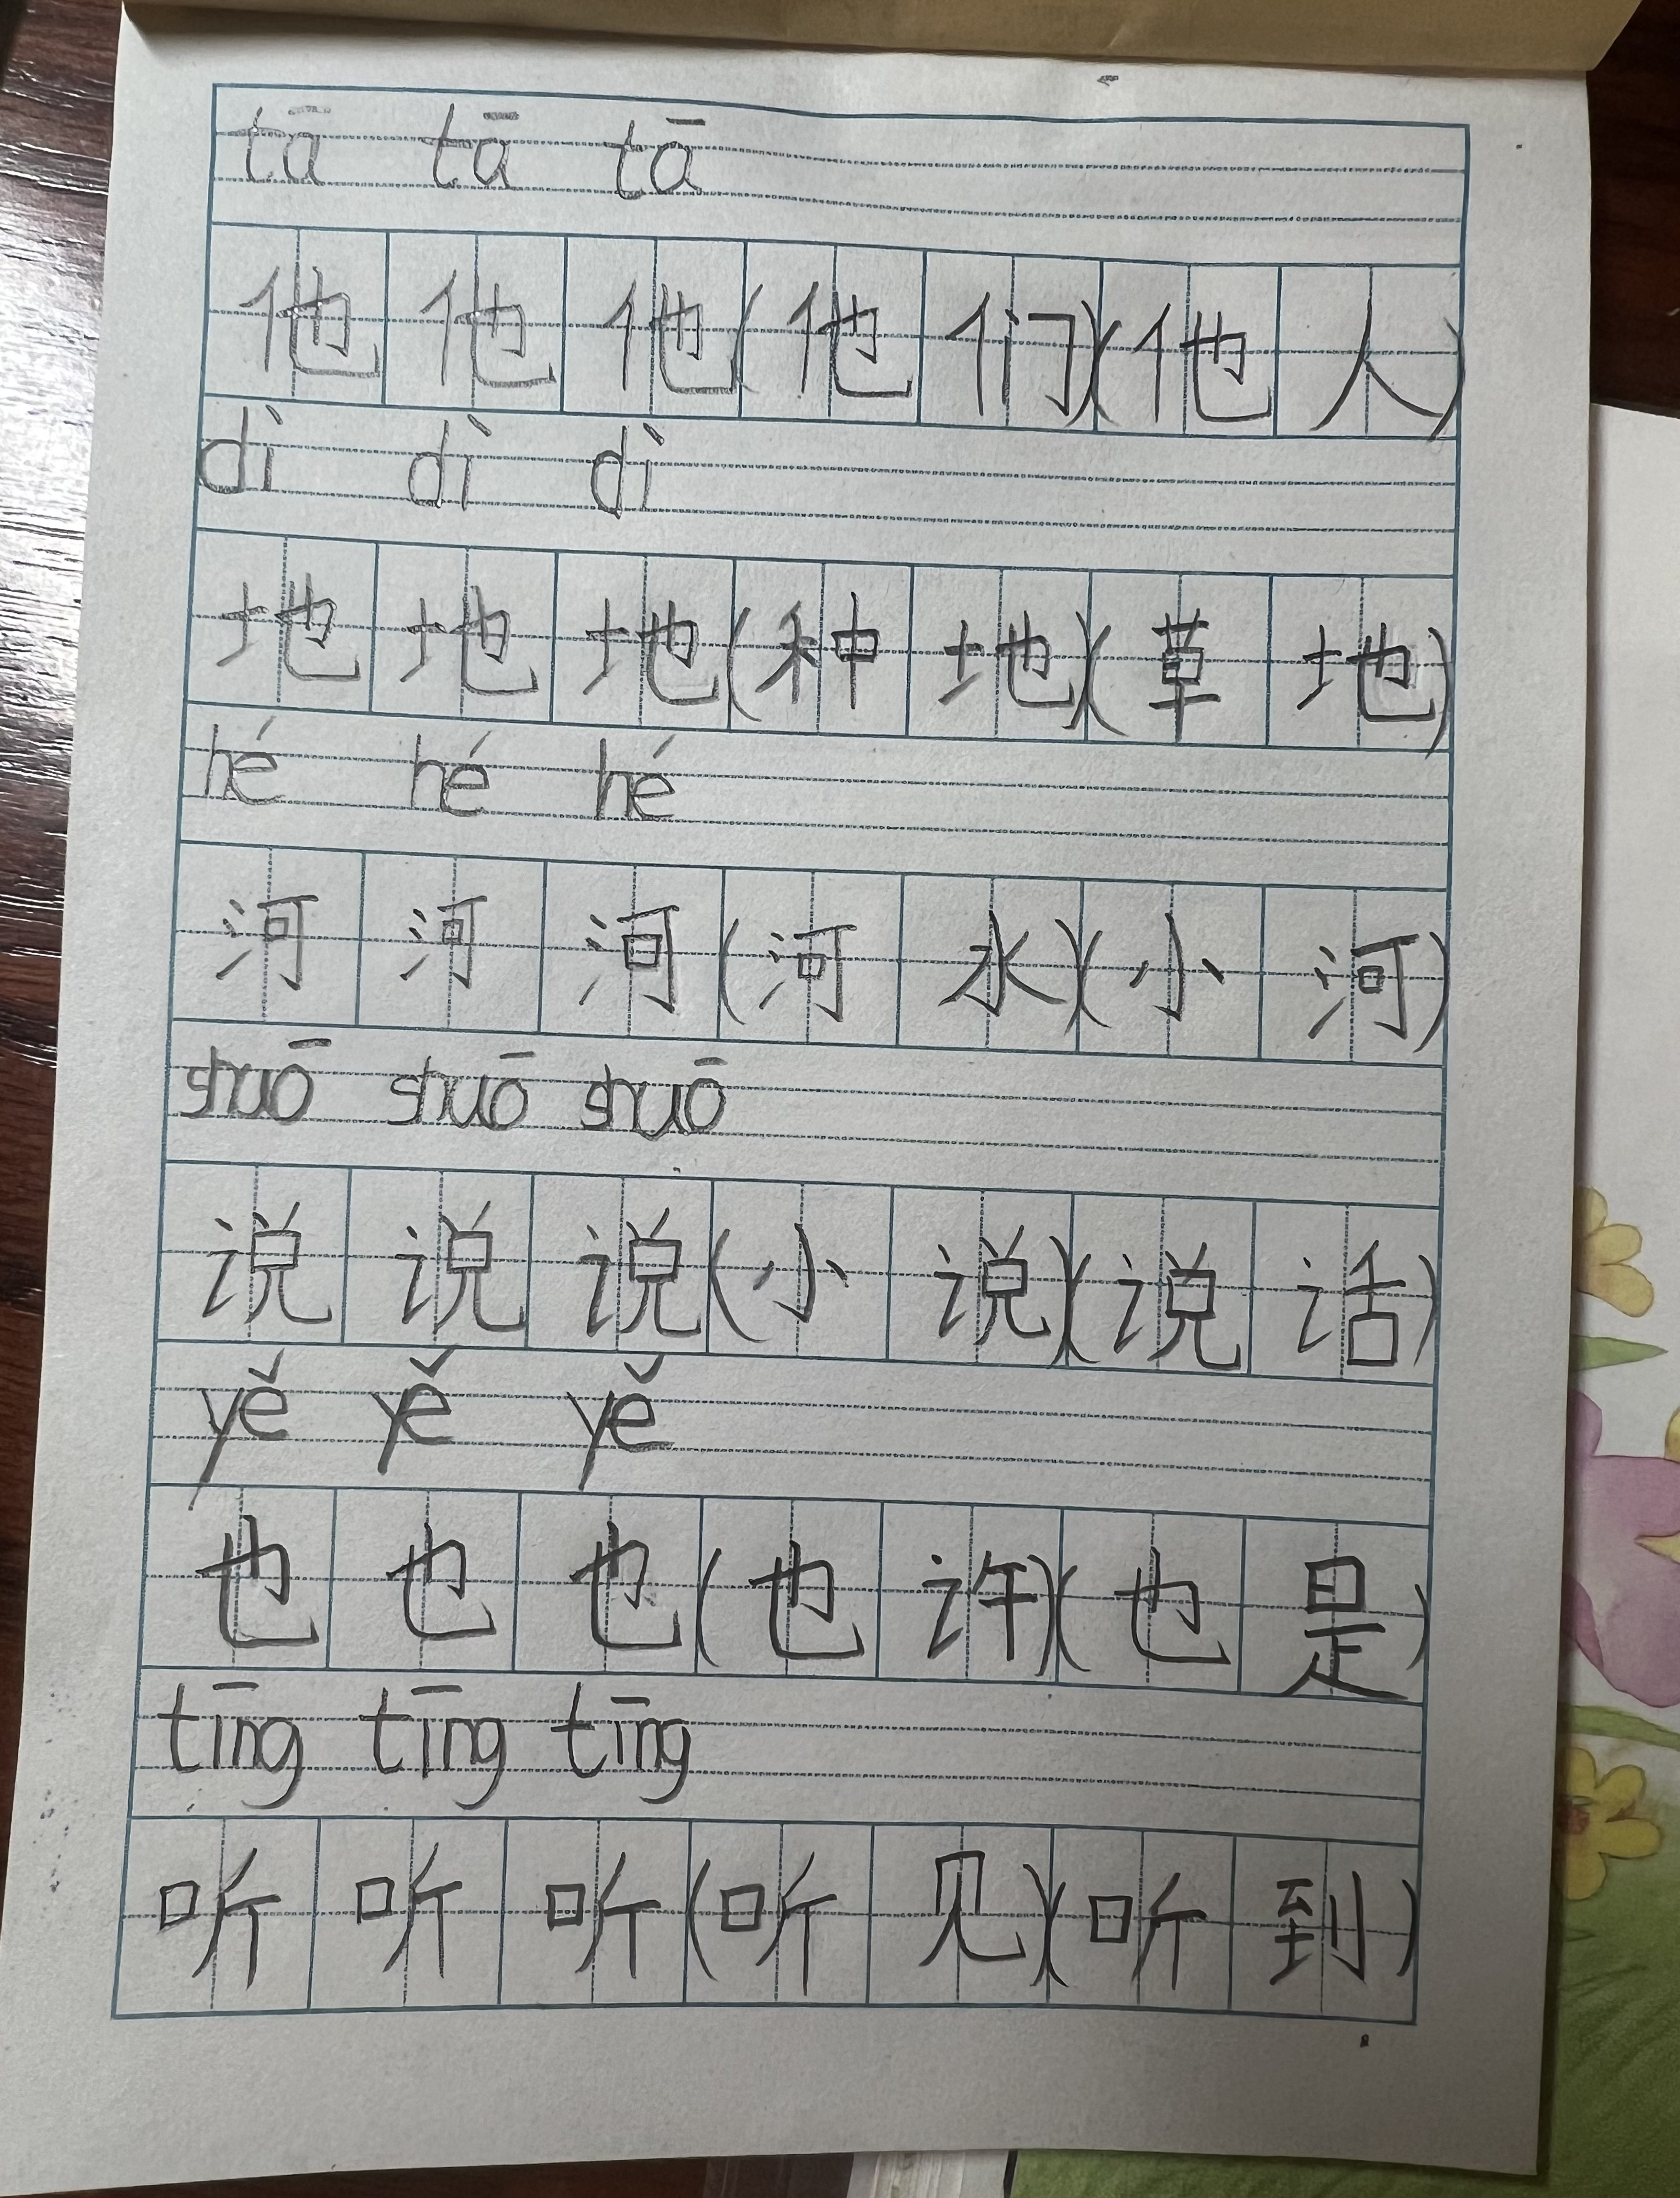 tā tā tā
他 他 他(他 们)(他 人)
dì dì dì
地 地 地(种 地)(草 地)
hé hé hé
河 河 河(河 水)(小 河)
shuō shuō shuō
说 说 说(小 说)(说 话)
yě yě yě
也 也 也(也 许)(也 是)
tīng tīng tīng
听 听 听(听 见)(听 到)